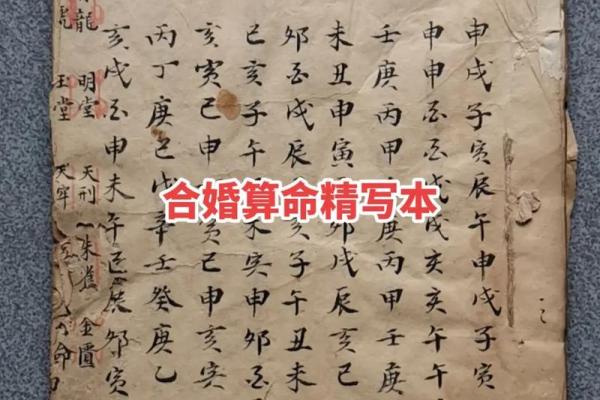 申戌子寅辰午申戌子寅
申申酉酉戌亥亥午午
壬庚丙甲庚丙甲壬庚
未丑申寅卯戌辰亥巳
卯酉戌辰子午丑未
巳亥子午未寅申卯酉
亥寅巳申寅巳申亥寅
丙丁庚己戊辛壬癸庚乙
亥戌酉申未午巳辰卯寅
龍 明堂 天刑 朱雀 金匱
虎 玉堂 天牢 命
合婚算命精写本